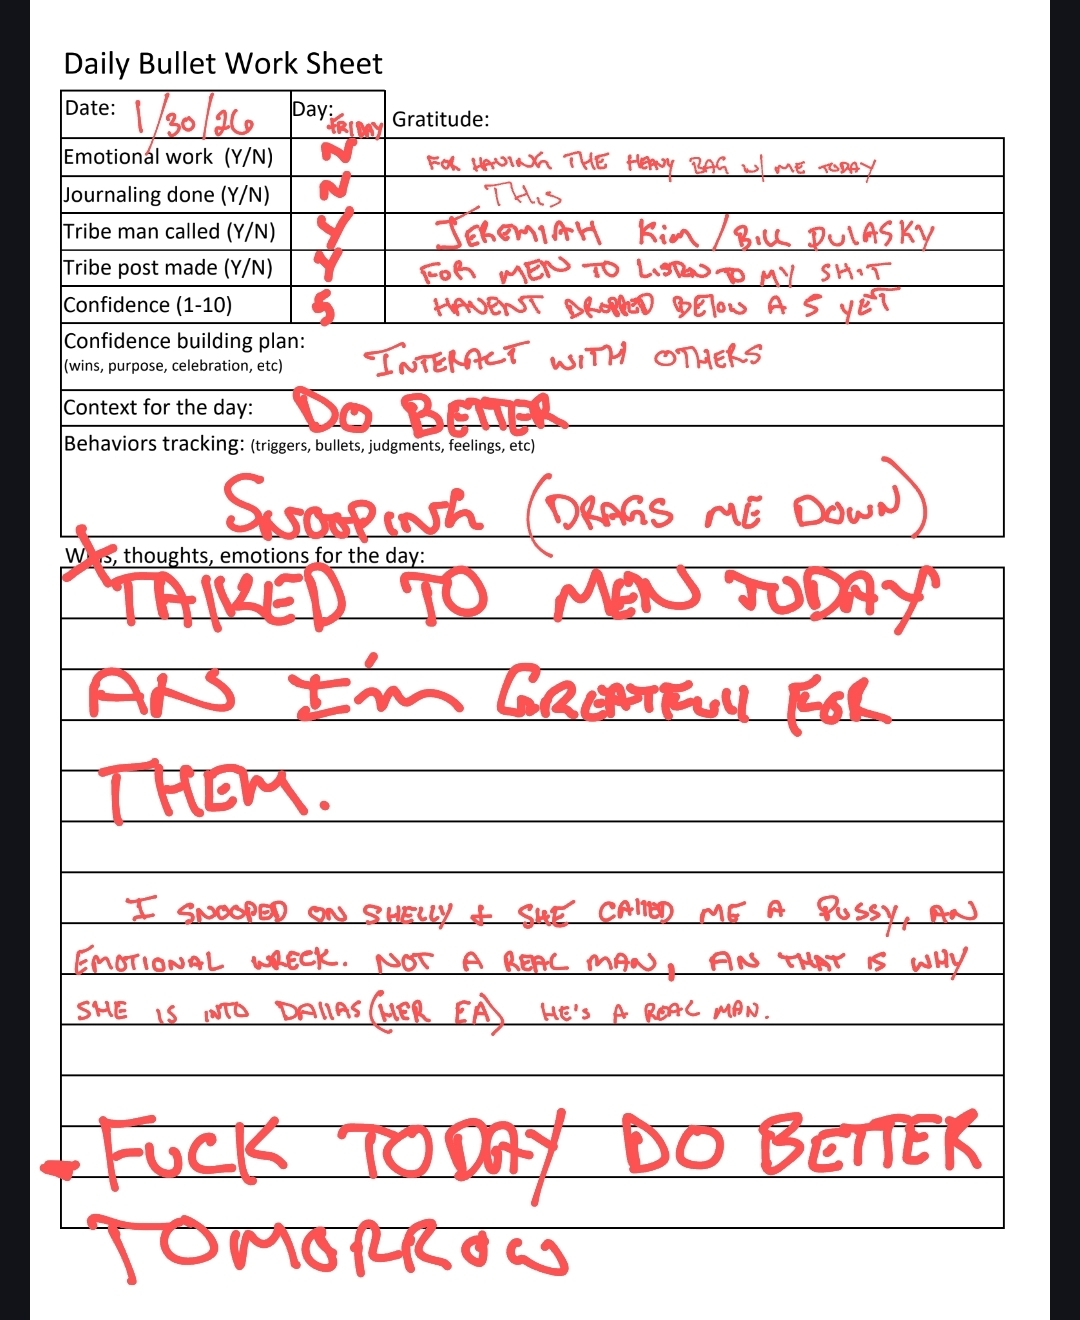 Daily Bullet Work Sheet
Date: 1/30/26 Day: FRIDAY Gratitude:
Emotional work (Y/N) N FOR HAVING THE HEAVY BAG W/ ME TODAY
Journaling done (Y/N) N THIS
Tribe man called (Y/N) Y JEREMIAH KIM / BILL DULASKY
Tribe post made (Y/N) Y FOR MEN TO LISTEN TO MY SHIT
Confidence (1-10) 5 HAVENT DROPPED BELOW A 5 YET
Confidence building plan:
(wins, purpose, celebration, etc) INTERACT WITH OTHERS
Context for the day: DO BETTER
Behaviors tracking: (triggers, bullets, judgments, feelings, etc)
SNOOPING (DRAGS ME DOWN)
Wins, thoughts, emotions for the day:
TALKED TO MEN TODAY
AN I'm GREATFUll FOR
THEM.
I SNOOPED ON SHELLY & SHE CALLED ME A PUSSY, AN
EMOTIONAL WRECK. NOT A REAL MAN, AN THAT IS WHY
SHE IS INTO DALLAS (HER EA) HE'S A REAL MAN.
- FUCK TODAY DO BETTER
TOMORROW